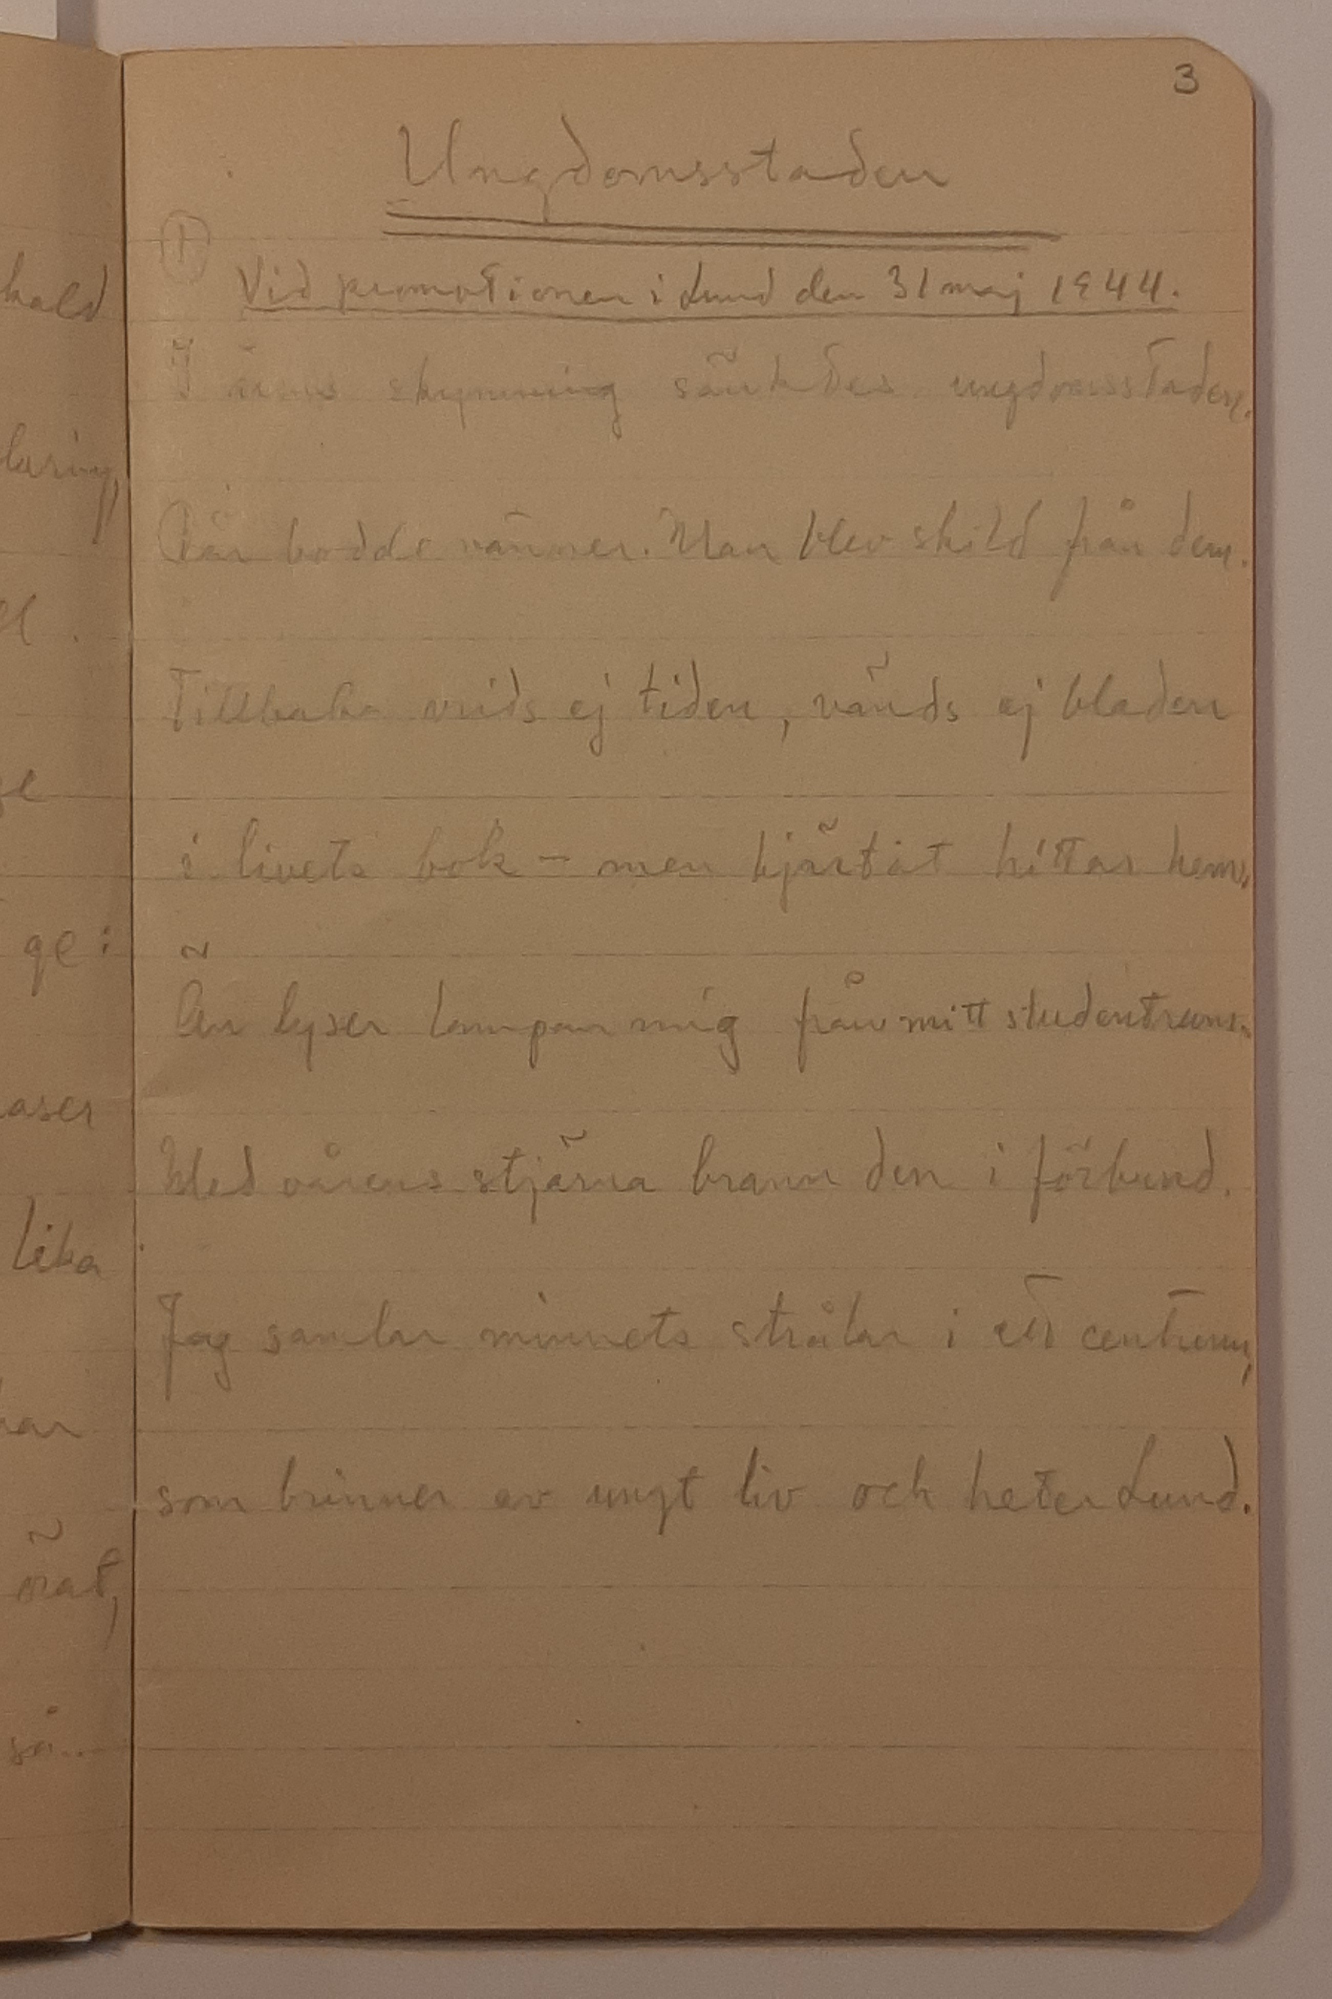 kald
laring,
ge:
aser
lika
har
örat,
så...
3
Ungdomsstaden
1
Vid promotionen i Lund den 31 maj 1944.
I årens skymning sänktes ungdomsstaden.
Där bodde vänner. Man blev skild från dem.
Tillbaka vrids ej tiden, vänds ej bladen
i livets bok – men hjärtat hittar hem.
Än lyser lampan mig från mitt studentrum.
Med vårens stjärna brann den i förbund.
Jag samlar minnets strålar i ett centrum,
som brinner av ungt liv och heter Lund.